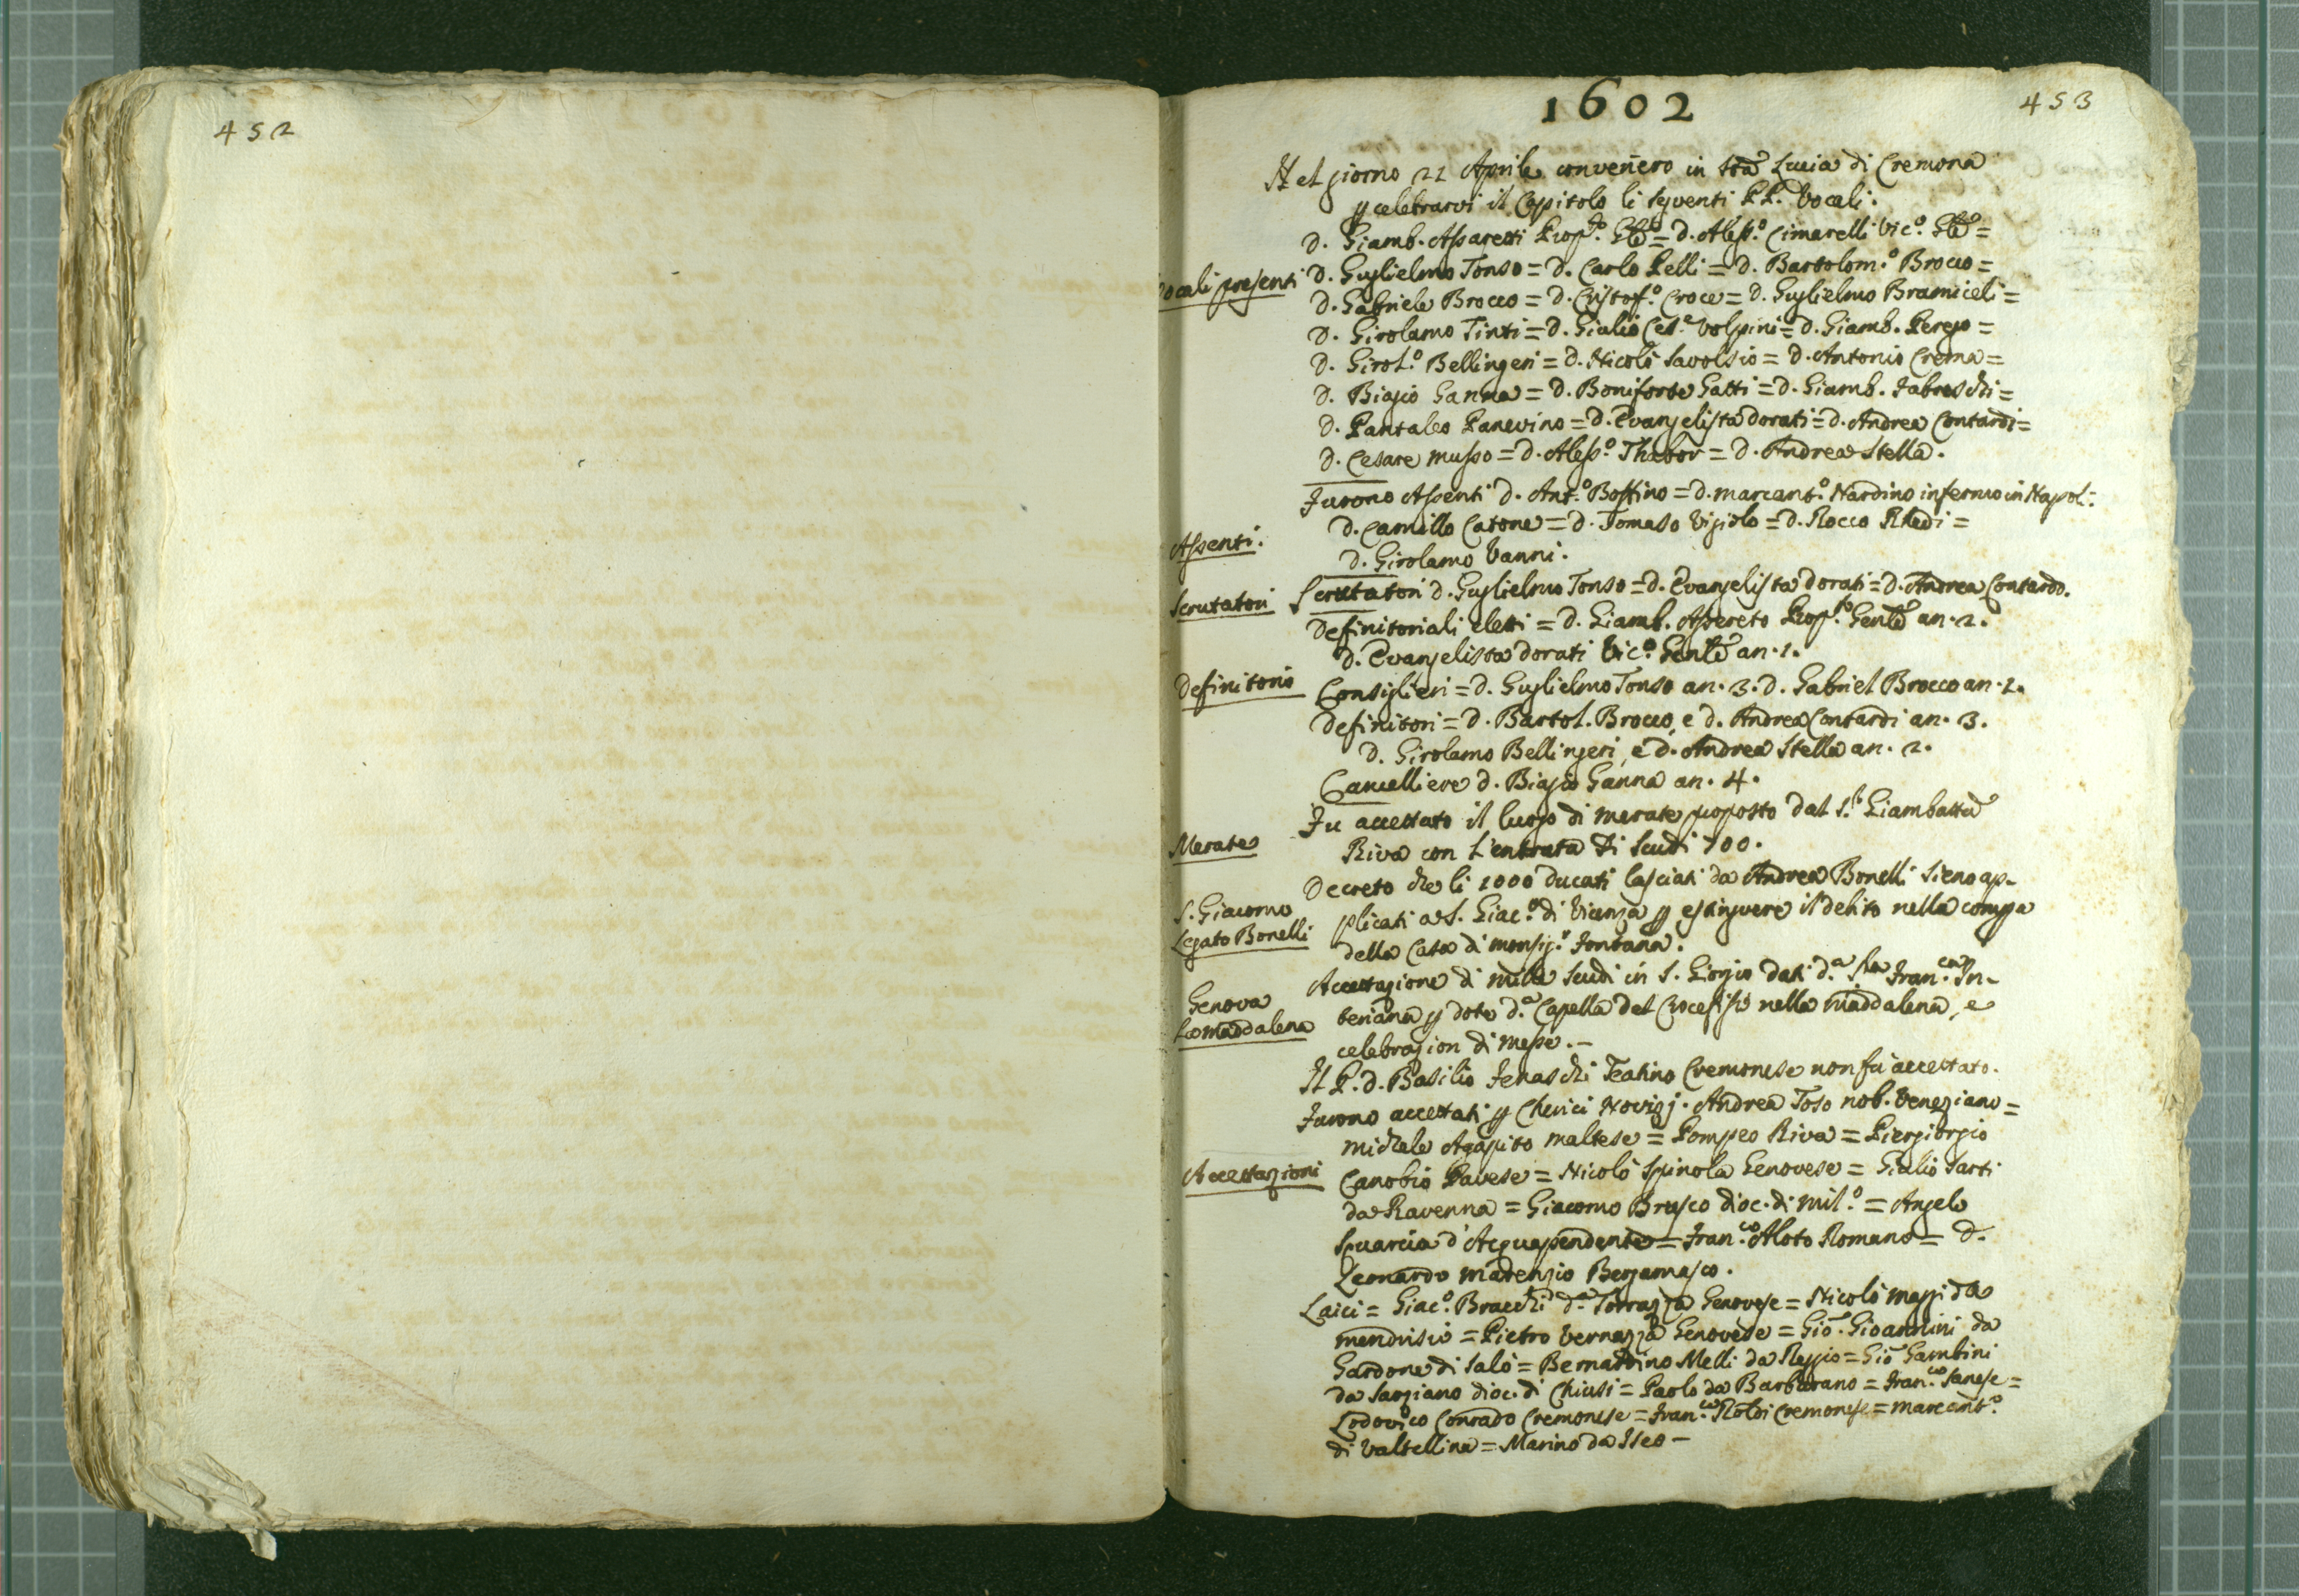 452
1602
453
Nel giorno 21 Aprile conveñero in Sta Lucia di Cremona
p celebrarvi il Capitolo li seguenti PP. Vocali.
D. Giamb. Assaretti Prop.to Gle = D. Aless.o Cimarelli Vic.o Gle =
Vocali presenti
D. Guglielmo Tonso = D. Carlo Pelli = D. Bartolom.o Brocco =
D. Gabriele Brocco = D. Cristof.o Croce = D. Guglielmo Bramiceli =
D. Girolamo Tinti = D. Giulio Ces.e Volpini = D. Giamb. Perego =
D. Girol.o Bellingeri = D. Nicolò Savolsio = D. Antonio Crema =
D. Biagio Ganna = D. Boniforte Gatti = D. Giamb. Fabreschi =
D. Pantaleo Panevino = D. Evangelista Dorati = D. Andrea Contardi =
D. Cesare Musso = D. Aless.o Thabor = D. Andrea Stella.
Furono Assenti D. Ant.o Bossino = D. Marcant.o Nardino infermo in Napol:
D. Camillo Catone = D. Tomaso Vigiolo = D. Rocco Rhedi =
Assenti.
D. Girolamo Vanni.
Scrutatori
Scrutatori D. Guglielmo Tonso = D. Evangelista Dorati = D. Andrea Contardo.
Definitoriali eletti = D. Giamb. Assereto Prop.to Genle an. 2.
D. Evangelista Dorati Vic.o Genle an. 1.
Definitorio
Consiglieri = D. Guglielmo Tonso an. 3. D. Gabriel Brocco an. 2.
Definitori = D. Bartol. Brocco, e D. Andrea Contardi an. 3.
D. Girolamo Bellingeri, e D. Andrea Stella an. 2.
Cancelliere D. Biagio Ganna an. 4.
Fu accettato il luogo di Merate proposto dal S.r Giambatta
Merate
Riva con l'entrata di Scudi 700.
Decreto che li 1000 ducati lasciati da Andrea Bonelli sieno ap-
S. Giacomo
plicati a S. Giac.o di Vicenza p estinguere il debito nella compra
Legato Bonelli
della Casa di Monsig.r Fontana.
Accettazione di mille Scudi in S. Giorgio dati d.a Sra Fran.ca In-
Genova
teriana p dote d.a Capella del Crocefisso nella Maddalena, e
La Maddalena
celebrazion di Messe.-
Il P. D. Basilio Fenaschi Teatino Cremonese non fu accettato.
Furono accettati p Chierici Novizj. Andrea Toso nob. Veneziano =
Michele Agapito Maltese = Pompeo Riva = Piergiorgio
Accettazioni
Canobio Pavese = Nicolò Spinola Genovese = Giulio Sarti
da Ravenna = Giacomo Brusco dioc. di Mil.o = Angelo
Squarcia d'Acquapendente = Fran.co Aloto Romano = D.
Leonardo Marenzio Bergamasco.
Laici = Giac.o Bracchi d.a Torrazza Genovese = Nicolò Maggi da
Mendrisio = Pietro Vernazza Genovese = Gio. Gioannini da
Gardone di Salò = Bernardino Melli da Reggio = Gio Gambini
da Sarziano dioc. di Chiusi = Paolo da Barbarano = Fran.co Sanese =
Lodovico Conrado Cremonese = Fran.co Roldi Cremonese = Marcant.o
di Valtellina = Marino da Iseo -